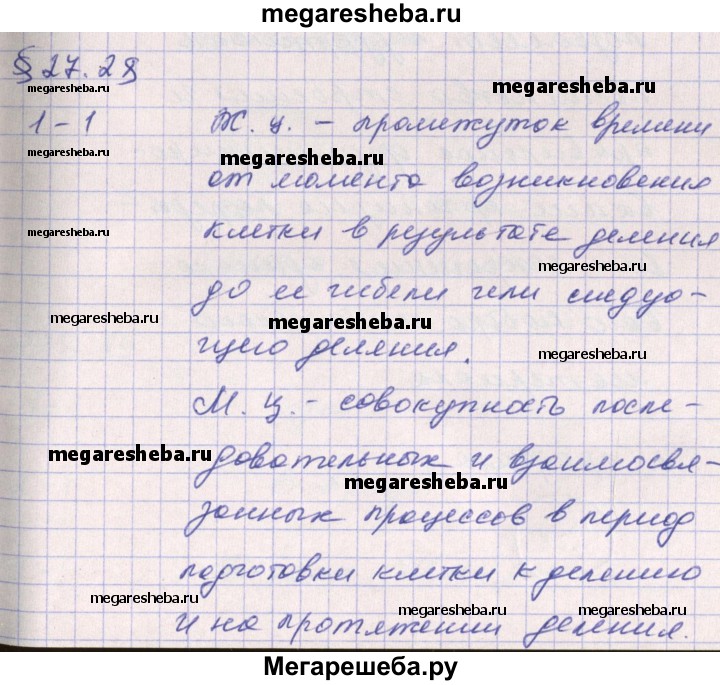 megaresheba.ru
§ 27.28
megaresheba.ru
megaresheba.ru
1-1 Ж.ц. - промежуток времени
megaresheba.ru
megaresheba.ru
от момента возникновения
megaresheba.ru
клетки в результате деления
megaresheba.ru
до ее гибели или следую-
megaresheba.ru
megaresheba.ru
щего деления.
megaresheba.ru
М.ц. - совокупность после-
megaresheba.ru
довательных и взаимосвя-
megaresheba.ru
занных процессов в период
подготовки клетки к делению
megaresheba.ru
megaresheba.ru
megaresheba.ru
и на протяжении деления.
Мегарешеба.ру